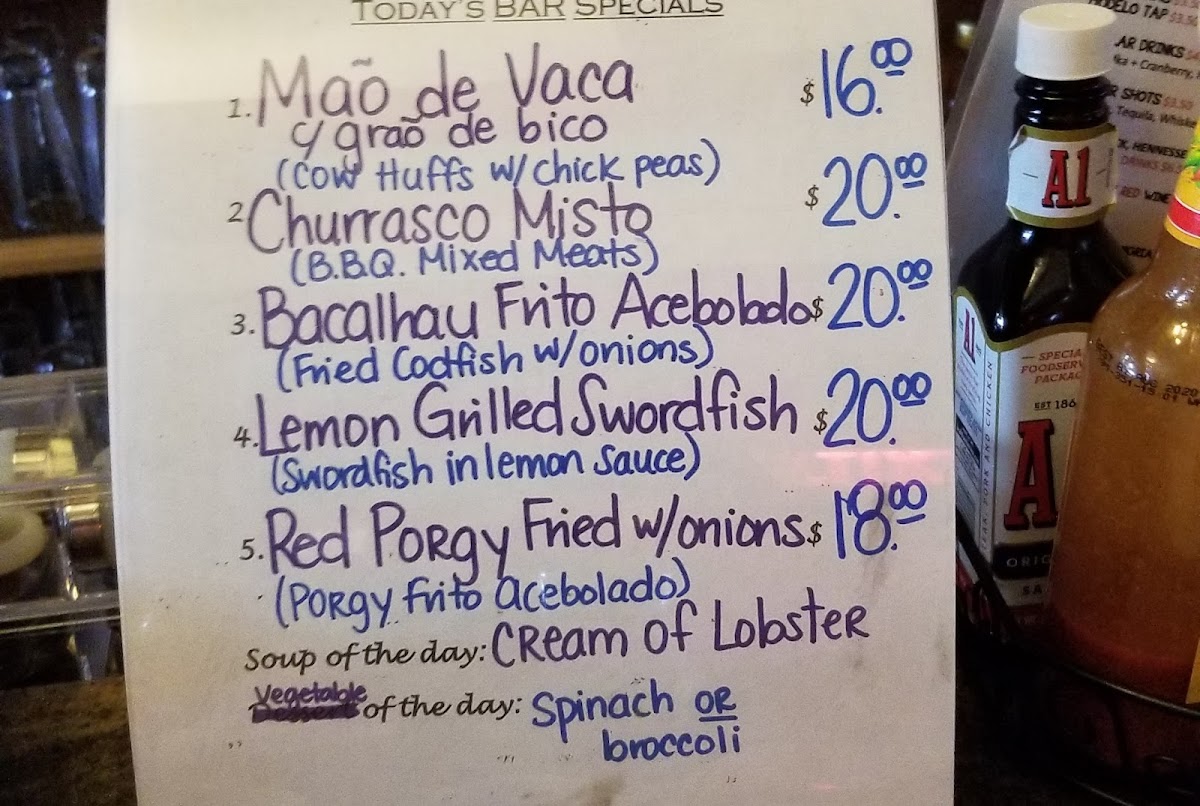 TODAY'S BAR SPECIALS
1. Mão de Vaca $16.00
c/grão de bico
(Cow Huffs w/ chick peas)
2 Churrasco Misto $20.00
(B.B.Q. Mixed Meats)
3. Bacalhau Frito Acebolado $20.00
(Fried Codfish w/onions)
4. Lemon Grilled Swordfish $20.00
(Swordfish in lemon Sauce)
5. Red Porgy Fried w/onions $18.00
(Porgy Frito Acebolado)
Soup of the day: Cream of Lobster
Vegetable of the day: Spinach OR
broccoli
MODELO TAP $3.50
AR DRINKS
ka + Cranberry,
R SHOTS $3.50
Tequila, Whiske
K, HENNESSE
DRINKS
RED WINE
A1
A1
SPECIA
FOODSERV
PACKAG
EST 186
STEAK, PORK AND CHICKEN
A
ORIG
SA
2020